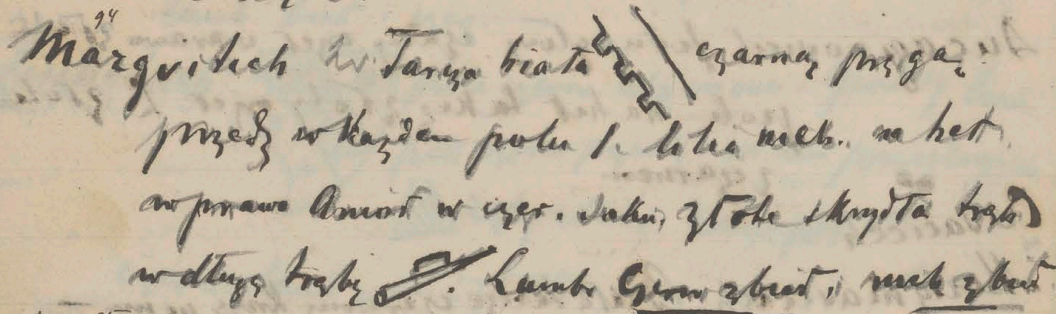 94
Margvitich Tarcza biała czarną pręgą
przedz w każdem polu 1. lilia nieb. na hełm
w prawo Anioł w czer. sukni, złote skrzydła trąbi
w długą trąbę . Lambr. Czerw. i nieb.